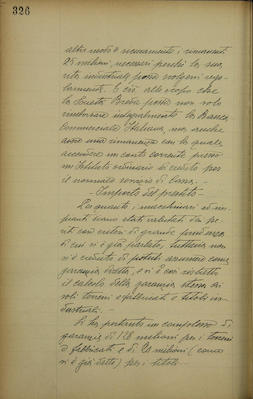 326
altri modi o nuovamente, i rimanenti
25 milioni, necessari perché la sua
vita industriale possa svolgersi rego-
larmente. E ciò allo scopo che
la Società Breda possa non solo
rimborsare integralmente la Banca
Commerciale Italiana, ma anche
una rimanenza con la quale
accendere un conto corrente presso
un Istituto ordinario di credito per
il normale servizio di Cassa.
- Importo del prestito -
I macchinari ed im-
pianti siano stati valutati dai pe-
riti con criteri di grande prudenza
di cui si è già parlato, tuttavia non
si è creduto di poterli assumere come
garanzia diretta, e si è così ristretto
il calcolo della garanzia stessa ai
soli terreni e fabbricati e titoli in-
dustriali. -
Si ha pertanto un complesso di
garanzie di 128 milioni per i terreni
e fabbricati e di 20 milioni (come
si è già detto) per i titoli